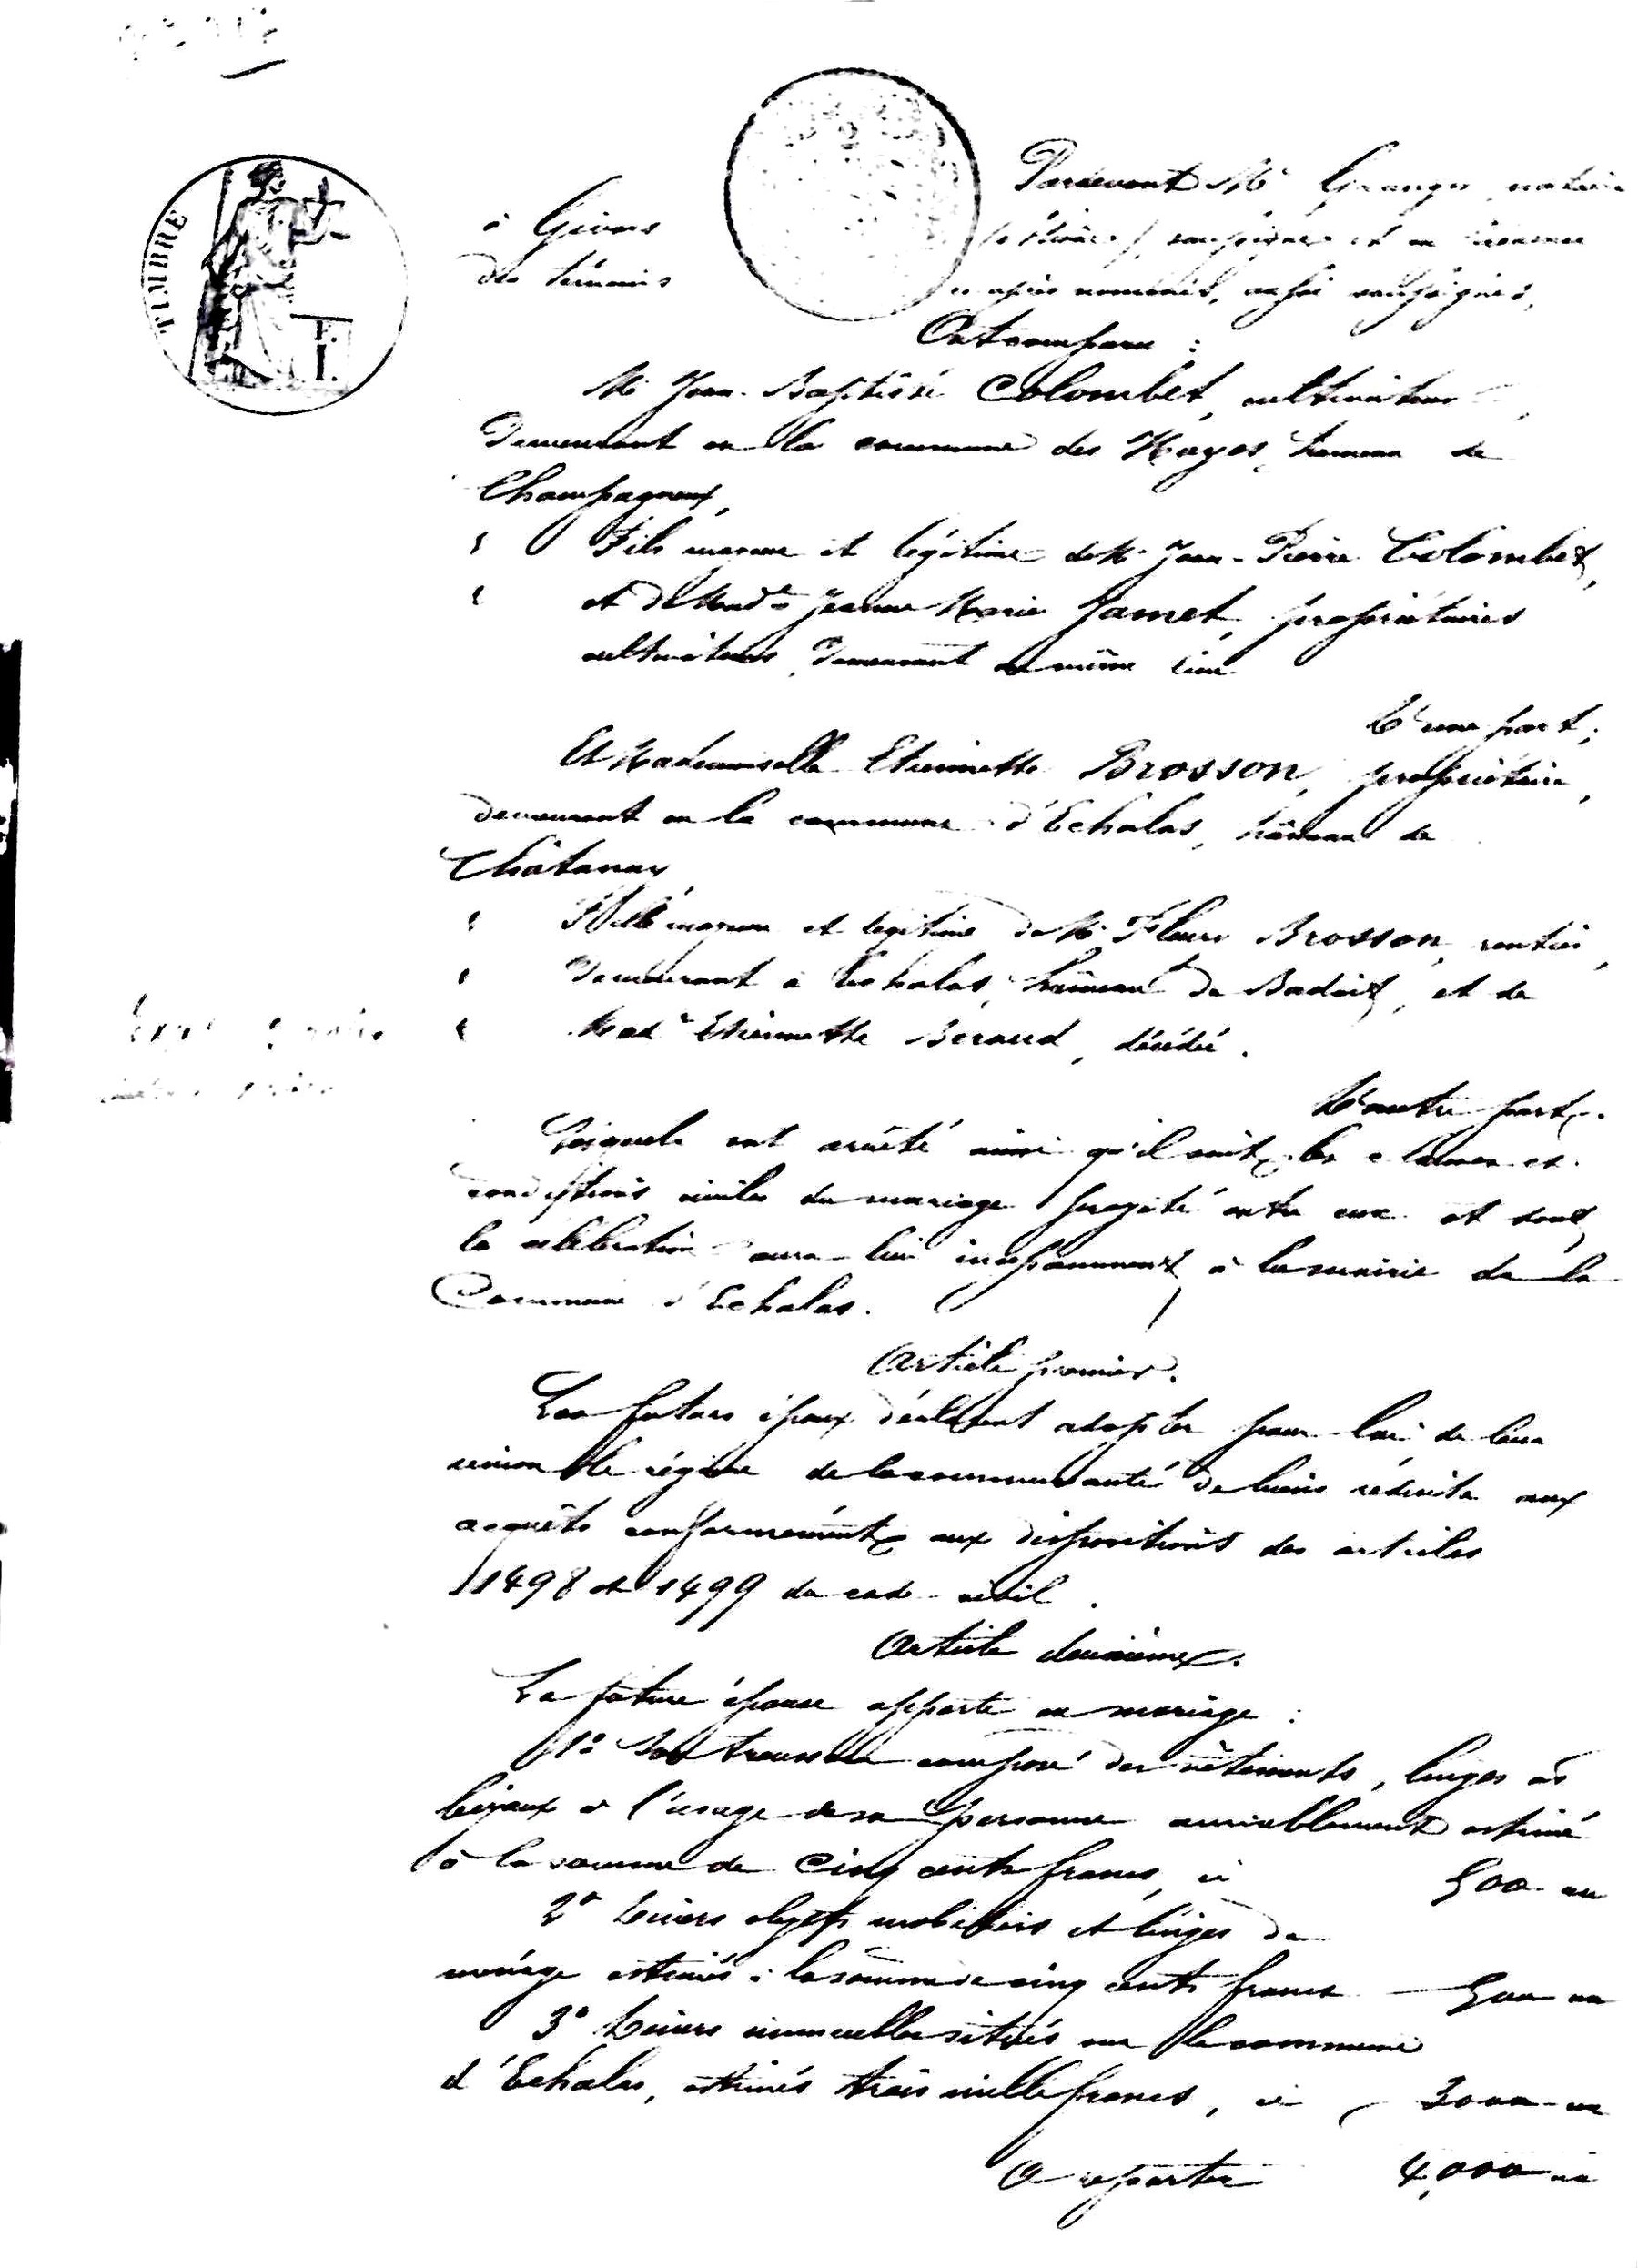 TIMBRE
Pardevant Me Granger notaire
à Givors (Rhône), soussigné et en présence
des témoins ci après nommés, aussi soussignés,
Ont comparu :
Mr Jean-Baptiste Colombet, cultivateur,
Demeurant en la commune des Hayes, hameau de
Champagneux,
Fils majeur et légitime de Mr Jean-Pierre Colombet,
et de Made Jeanne Marie Jamet, propriétaires
cultivateurs, Demeurant au même lieu
D'une part ;
Et Mademoiselle Etiennette Brosson, propriétaire,
demeurant en la commune d'Echalas, hâmeau de
Châtanay
Fille majeure et légitime de Mr Fleury Brosson, rentier,
Demeurant à Echalas, hâmeau de Badoit, et de
Made Etiennette Beraud, décédée.
D'autre part.
Lesquels ont arrêté ainsi qu'il suit les clauses et
conditions civiles du mariage projeté entre eux et dont
la célébration aura lieu incessamment à la mairie de la
Commune d'Echalas.
Article premier.
Les futurs époux déclarent adopter pour loi de leur
union le régime de la communauté de biens réduite aux
acquêts conformément aux dispositions des articles
1498 et 1499 du code civil.
Article deuxième.
La future épouse apporte en mariage :
1° Son trousseau composé des vêtements, linges et
bijoux à l'usage de sa personne amiablement estimé
à la somme de Cinq cents francs, ci 500 "
2° Divers objets mobiliers et linges de
ménage estimés à la somme de cinq cents francs 500 "
3° Divers immeubles situés sur la commune
d'Echalas, estimés trois mille francs, ci 3000 "
A reporter 4,000 "